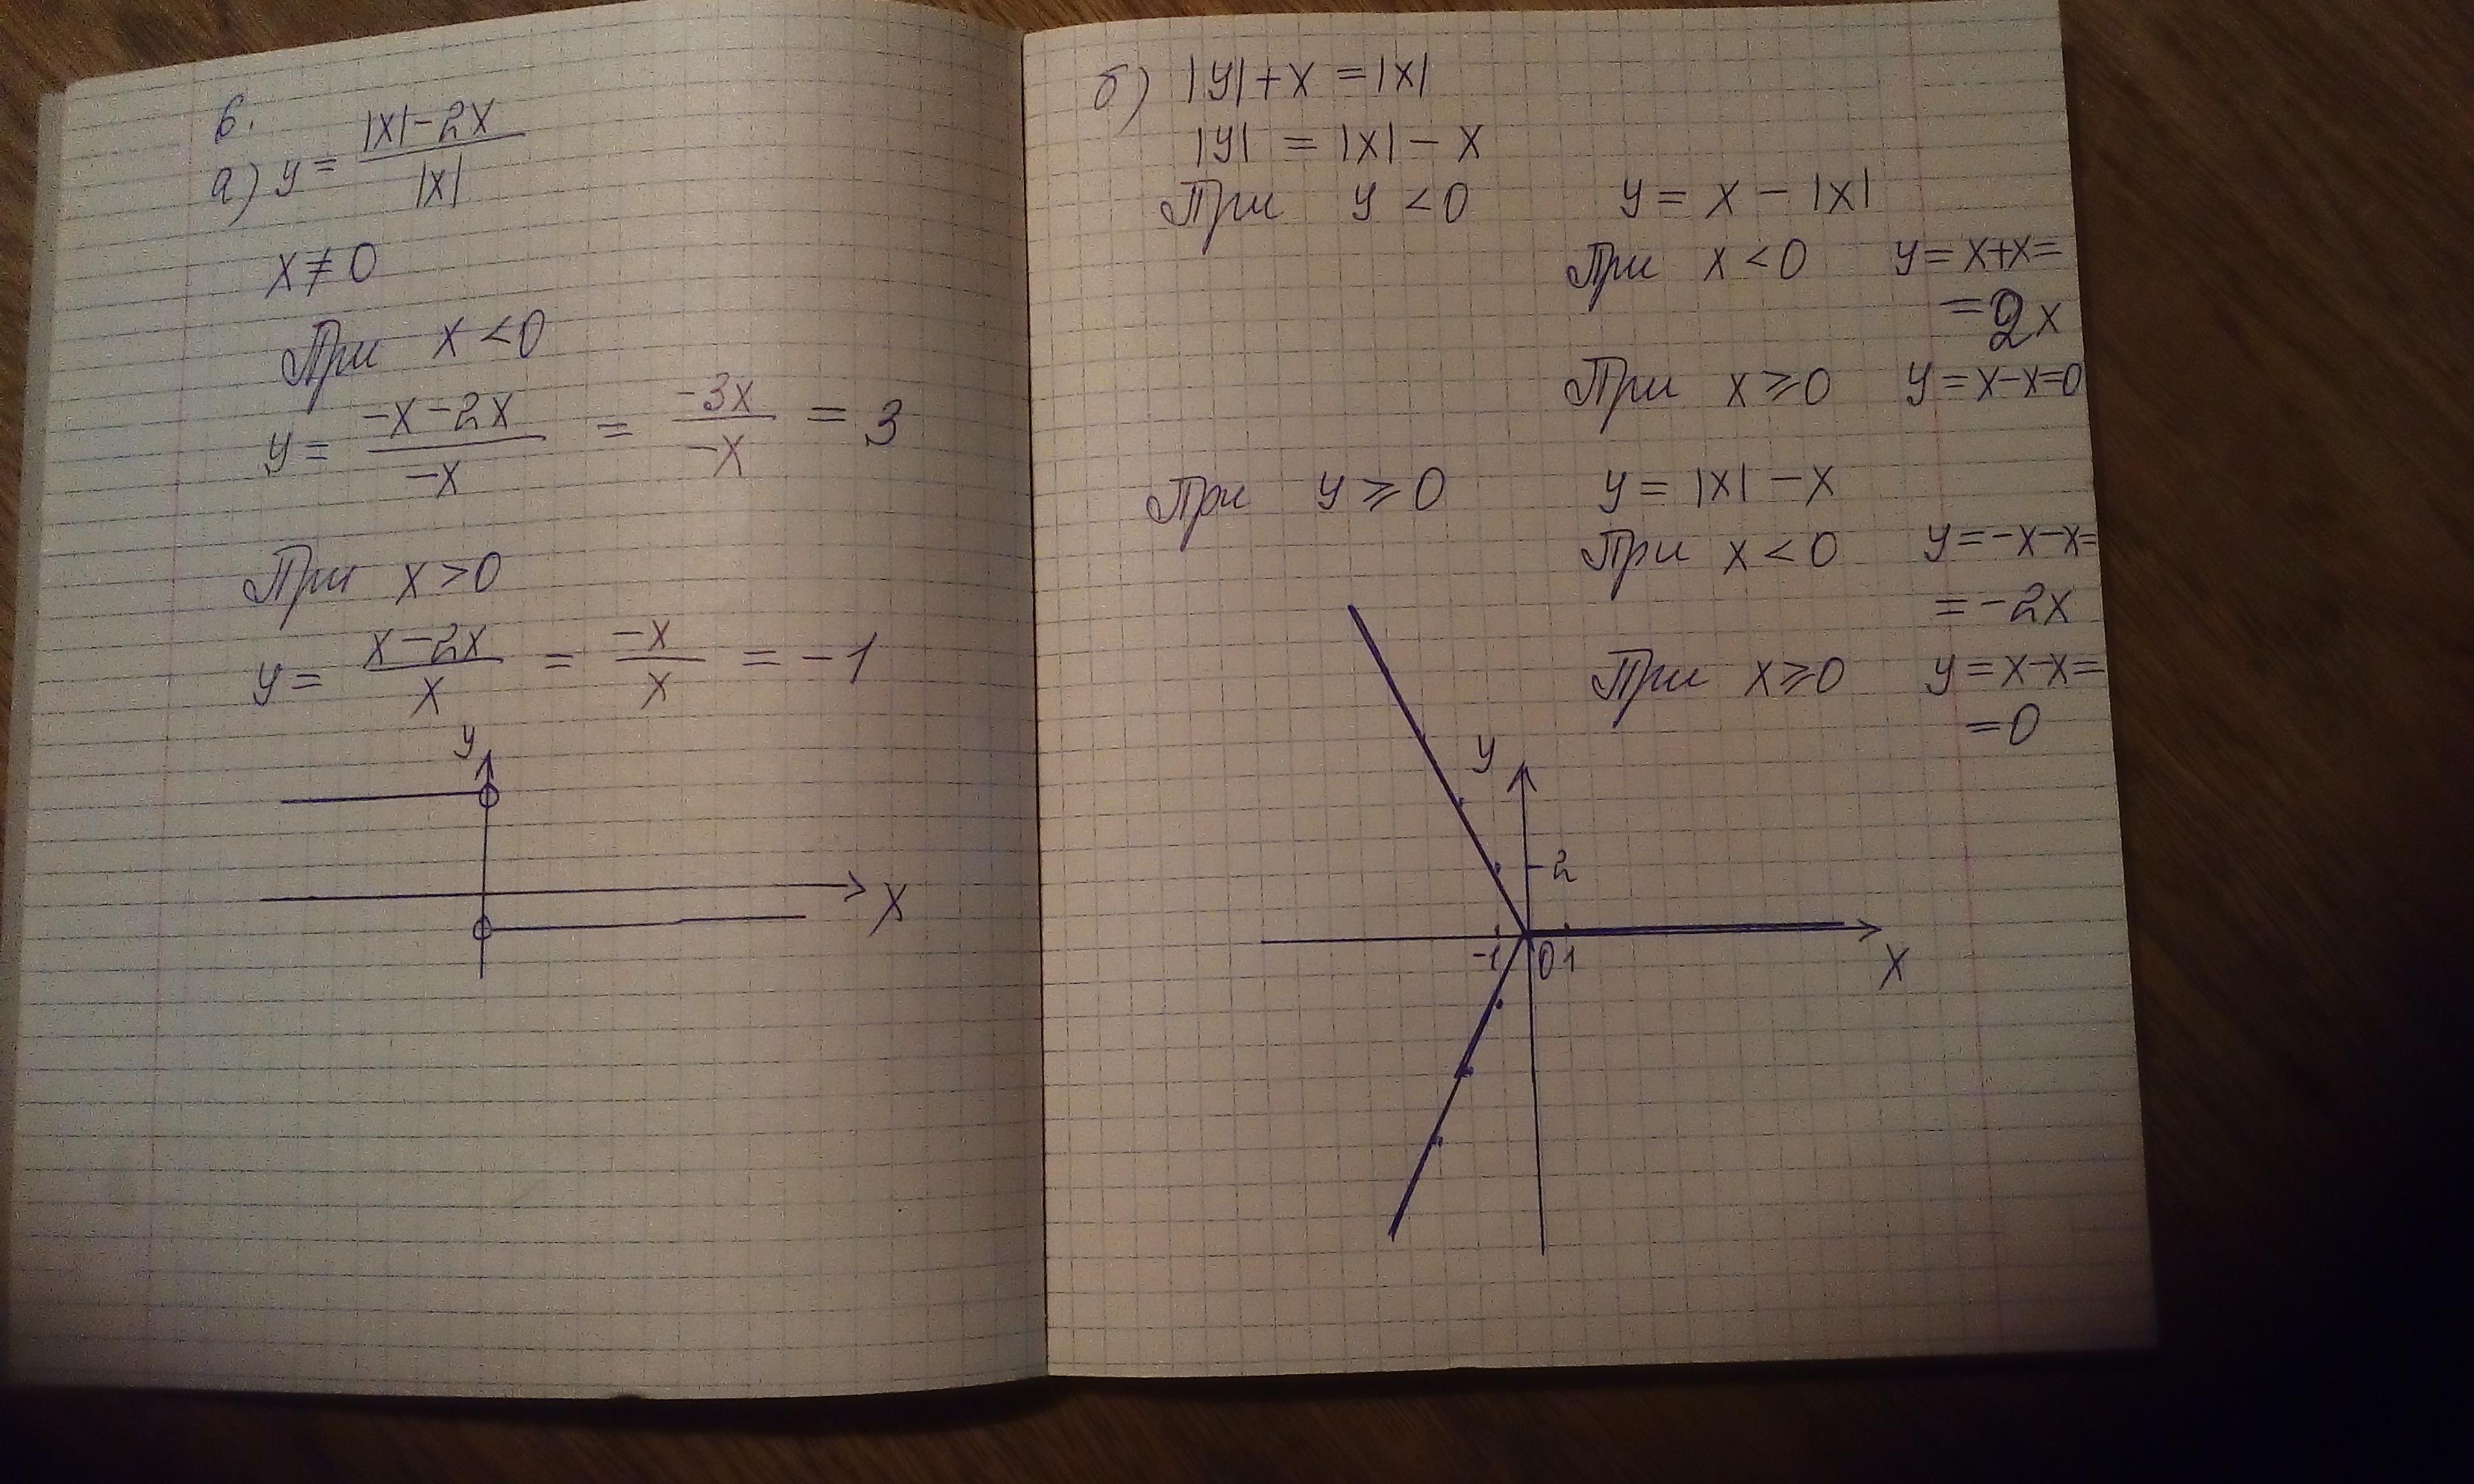 6.
а) y = |x|-2x / |x|
x ≠ 0
При x < 0
y = -x-2x / -x = -3x / -x = 3
При x > 0
y = x-2x / x = -x / x = -1
y
x
б) |y| + x = |x|
|y| = |x| - x
При y < 0 y = x - |x|
При x < 0 y = x+x=
= 2x
При x ⩾ 0 y = x-x=0
При y ⩾ 0 y = |x| - x
При x < 0 y = -x-x=
= -2x
При x ⩾ 0 y = x-x=
=0
y
2
-1 0 1
x